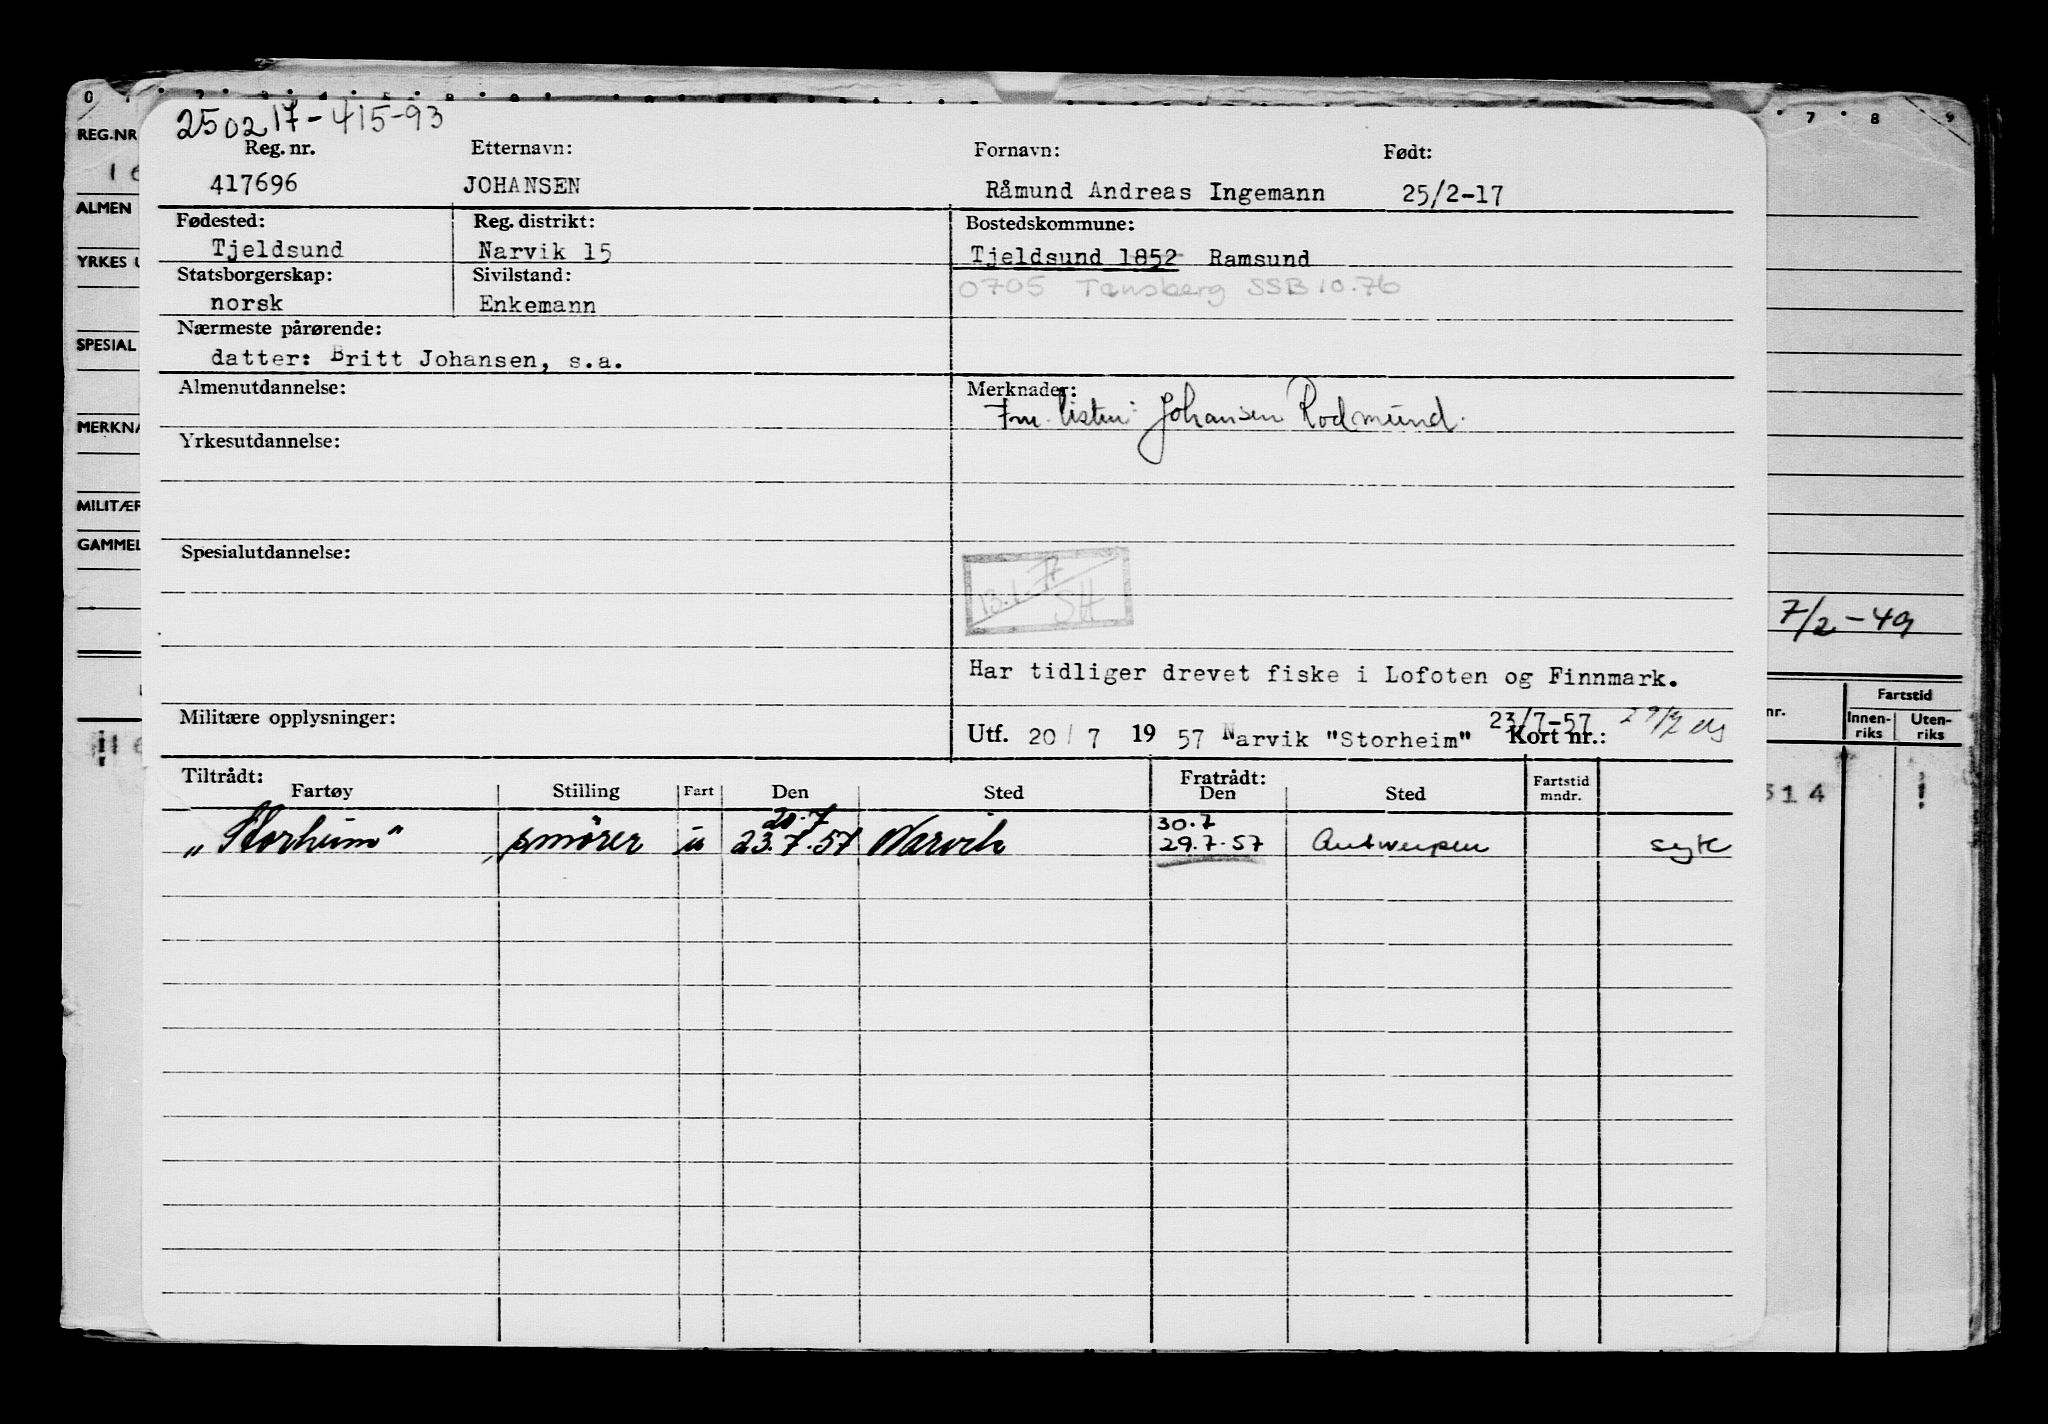 250217-415-93
Reg. nr. Etternavn: Fornavn: Født:
417696 JOHANSEN Råmund Andreas Ingemann 25/2-17
Fødested: Reg. distrikt: Bostedskommune:
Tjeldsund Narvik 15 Tjeldsund 1852 Ramsund
Statsborgerskap: Sivilstand: 0705 Tønsberg SSB 10.76
norsk Enkemann
Nærmeste pårørende:
datter: Britt Johansen, s.a.
Almenutdannelse: Merknader:
Johansen Rodmund.
Yrkesutdannelse:
Spesialutdannelse:
13.1.77
SH
Har tidliger drevet fiske i Lofoten og Finnmark.
Militære opplysninger: 23/7-57
Utf. 20/7 1957 Narvik "Storheim" Kort nr.:
Tiltrådt: Fratrådt:
Fartøy Stilling Fart Den Sted Den Sted Fartstid mndr.
20.7 30.7
"Storheim" smører u 23.7.57 Narvik 29.7.57 Antwerpen syk
0 7 8 9
REG.NR
16
ALMEN
YRKES U
SPESIAL
MERKNA
MILITÆR
GAMMEL
7/2-49
nr. Fartstid
Innen-riks Uten-riks
514